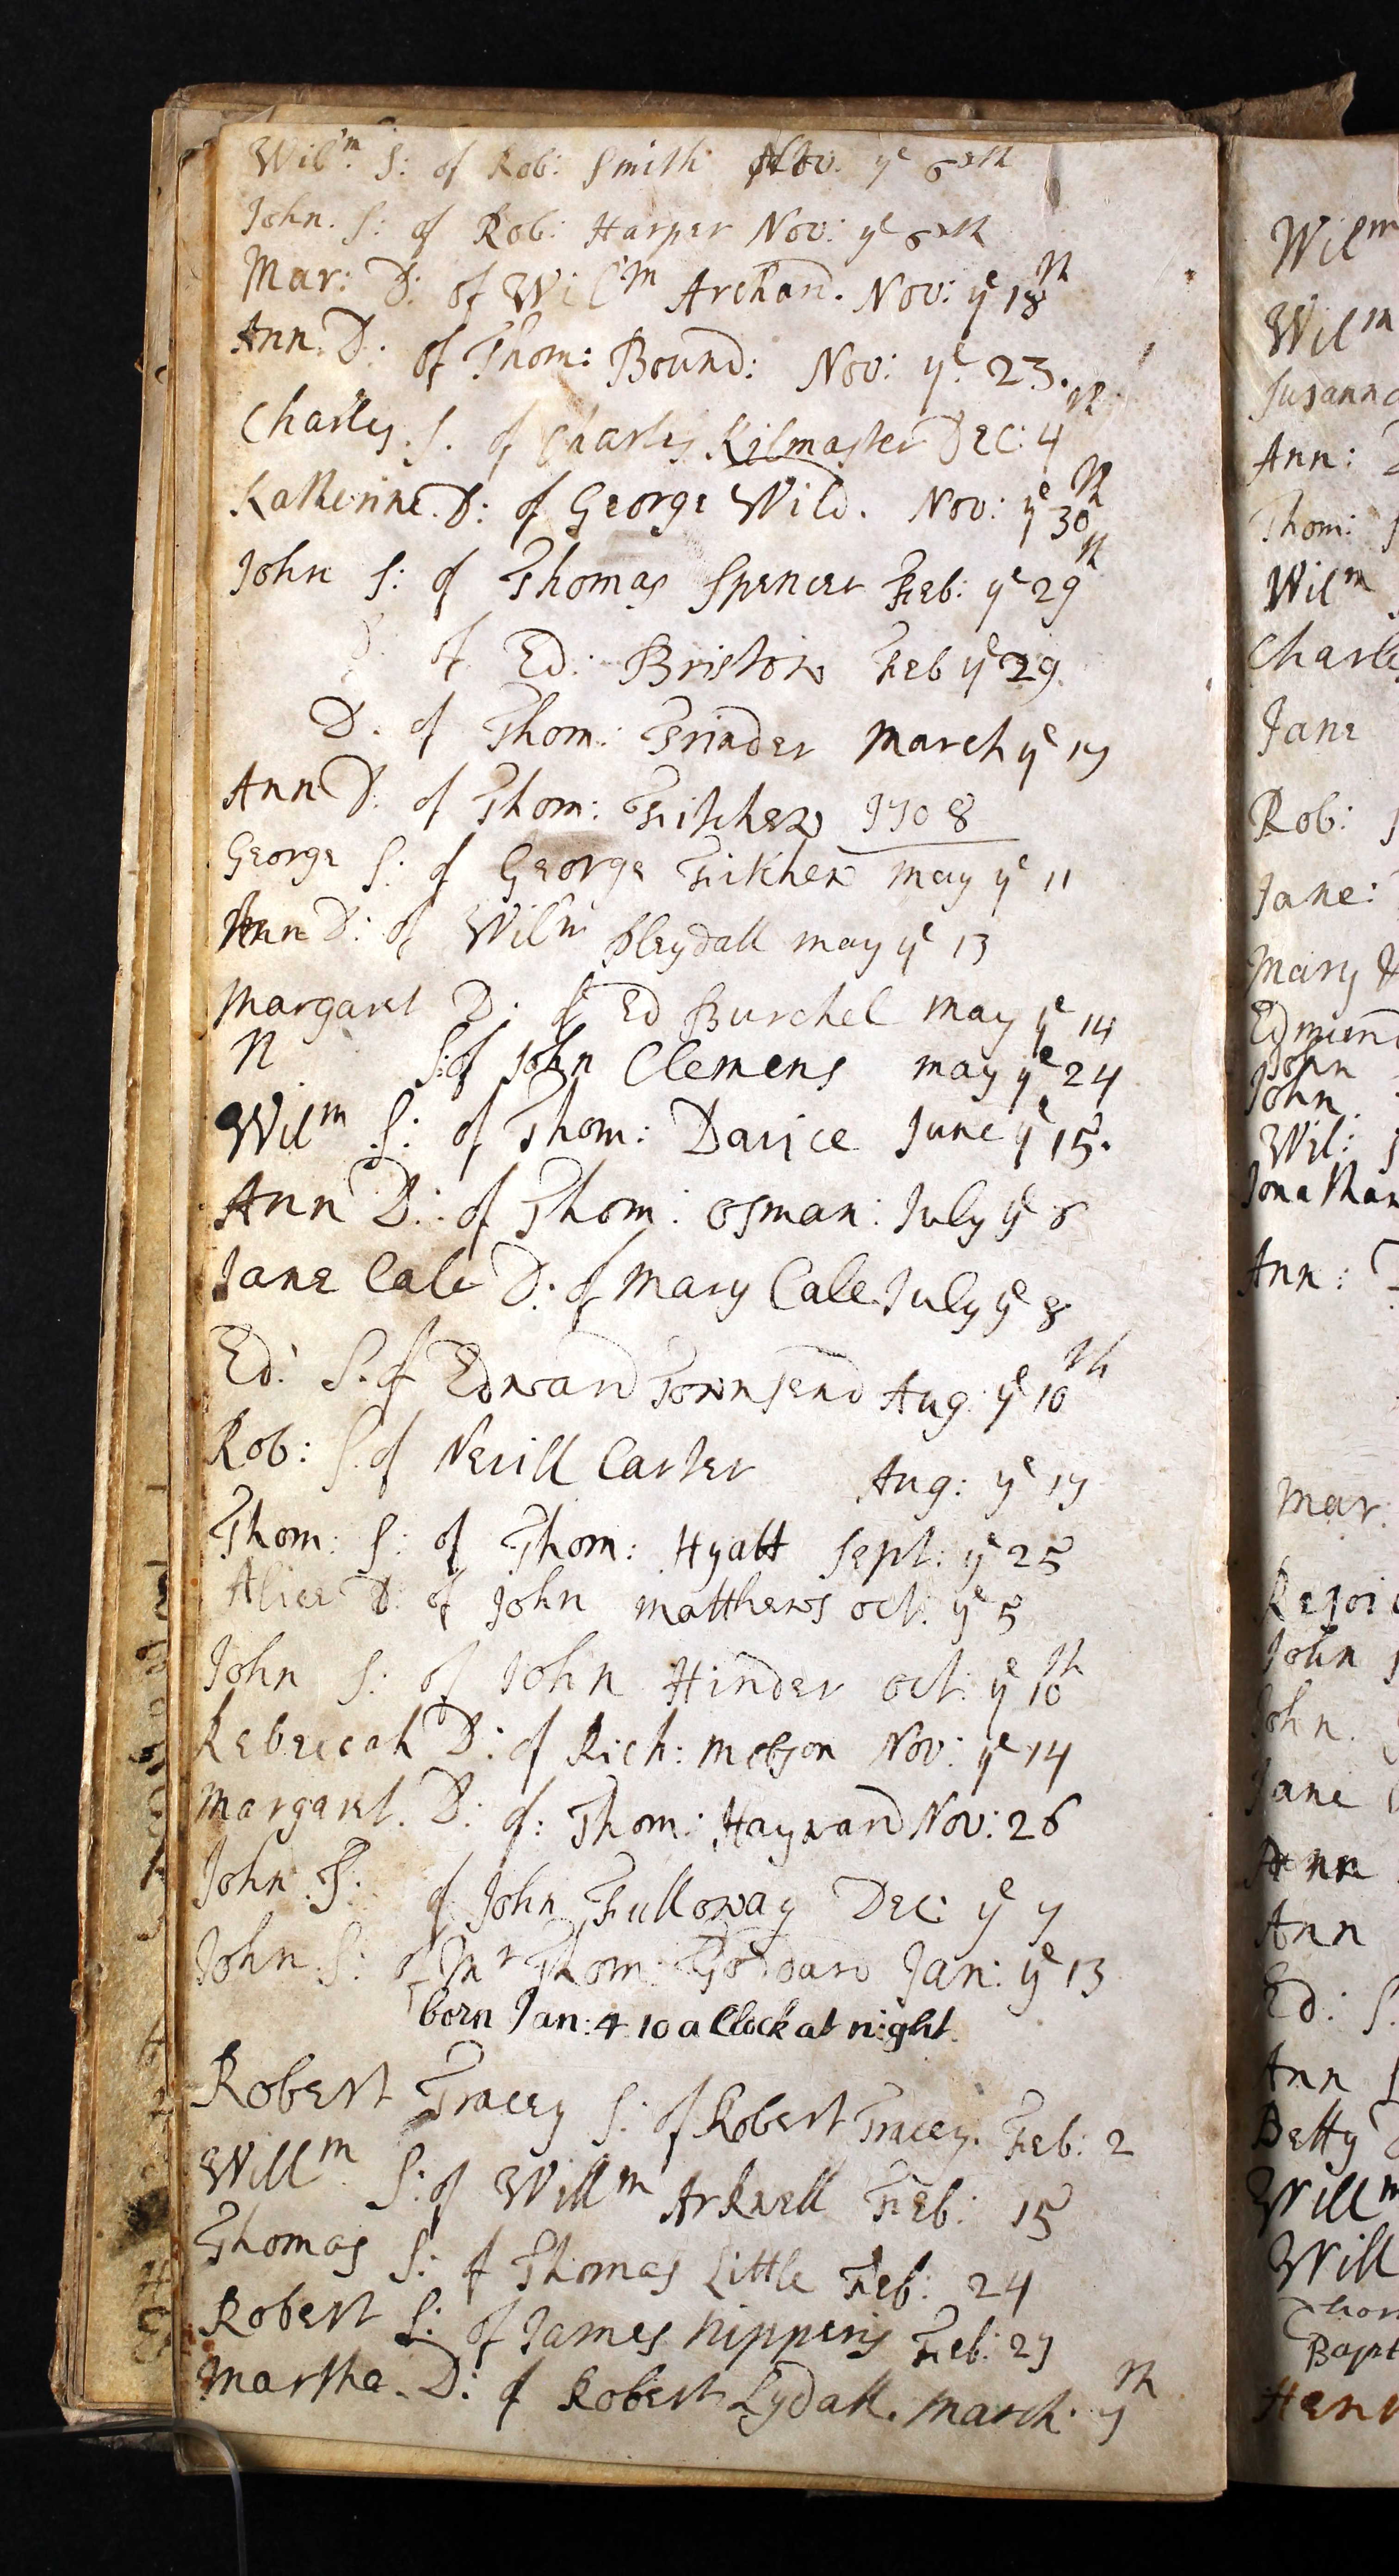 Wilm. S: of Rob: Smith Nov. ye 6th
John. S: of Rob: Harper Nov: ye 6th
Mar: D: of Wilm Archard. Nov: ye 18th
Ann. D. of Thom: Bound: Nov: ye 23.
Charles. S. of Charles Kilmaster Dec: 4th
Katherine. D: of George Wild. Nov: ye 30th
John S: of Thomas Spencer Feb: ye 29th
D. of Ed: Bristow Feb ye 29
D. of Thom: Trinder March ye 17
Ann D. of Thom: Fitchew 1708
George S: of George Fitchew may ye 11
Ann D: of Wilm Pleydall may ye 13
Margaret D: of Ed Burchel may ye 14
N S: of John Clemens may ye 24
Wilm S: of Thom: Davice June ye 15.
Ann D: of Thom: Osman: July ye 6
Jane Cale D: of Mary Cale July ye 8
Ed: S. of Edward Townsend Aug: ye 10th
Rob: S. of Nevill Carter Aug: ye 17
Thom: S: of Thom: Hyatt Sept: ye 25
Alice D. of John Matthews Oct: ye 5
John S: of John Hinder Oct: ye 10th
Rebeccah D: of Rich: Nov: ye 14
Margaret. D: of: Thom: Hayward Nov: 26
John. S: of John Fulloway Dec: ye 7
John. S: of Mr Thom: Goddard Jan: ye 13
born Jan: 4 10 a Clock at night.
Robert Tracey S: of Robert Tracey. Feb: 2
Willm S: of Willm Arkell Feb: 15
Thomas S: of Thomas Little Feb: 24
Robert S: of James Nipperis Feb: 27
Martha. D: of Robert Lydall. March. 7th
Wilm
Wilm
Ann:
Thom:
Wilm
Jane
Rob:
Jane:
Mary
John
John
Wil:
Ann:
Mar
John
John
Jane
Ann
Ann
Ed: S.
Ann
Betty
Willm
Will